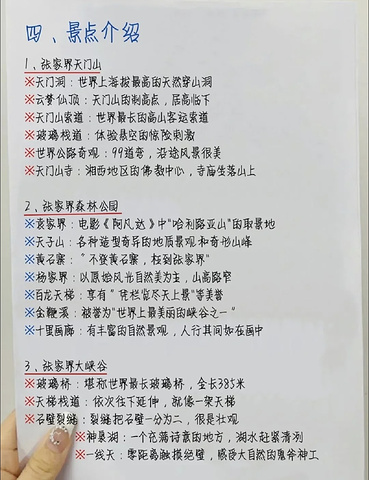 四、景点介绍
1、张家界天门山
※天门洞：世界上海拔最高的天然穿山洞
※云梦仙顶：天门山的制高点，居高临下
※天门山索道：世界最长的高山客运索道
※玻璃栈道：体验悬空的惊险刺激
※世界公路奇观：99道弯，沿途风景很美
※天门山寺：湘西地区的佛教中心，寺庙坐落山上
2、张家界森林公园
※袁家界：电影《阿凡达》中"哈利路亚山"的取景地
※天子山：各种造型奇异的地质景观和奇形山峰
※黄石寨："不登黄石寨，枉到张家界"
※杨家界：以原始风光自然美为主，山高路窄
※百龙天梯：享有"凭栏览尽天上景"等美誉
※金鞭溪：被誉为"世界上最美丽的峡谷之一"
※十里画廊：有丰富的自然景观，人行其间如在画中
3、张家界大峡谷
※玻璃桥：堪称世界最长玻璃桥，全长385米
※天梯栈道：依次往下延伸，就像一架天梯
※石壁裂缝：裂缝把石壁一分为二，很是壮观
※神泉湖：一个充满诗意的地方，湖水轻漾清冽
※一线天：零距离触摸绝壁，感受大自然的鬼斧神工